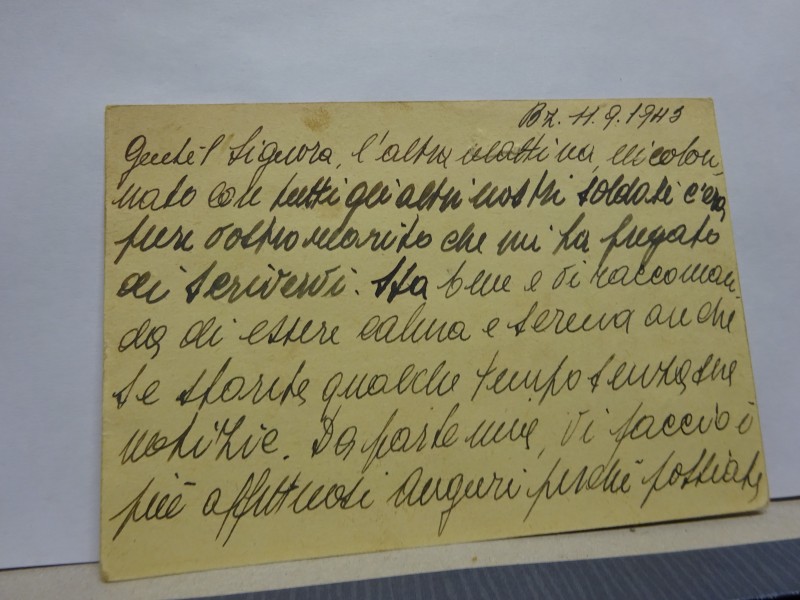 Bz. 11.9.1943
Gentil Signora, l'altra mattina, incolon,
nato con tutti gli altri nostri soldati c'era
pure vostro marito che mi ha pregato
di scrivervi. Sta bene e vi raccoman,
da di essere calma e serena anche
se starete qualche tempo senza sue
notizie. Da parte mia, vi faccio i
più affettuosi auguri perchè possiate